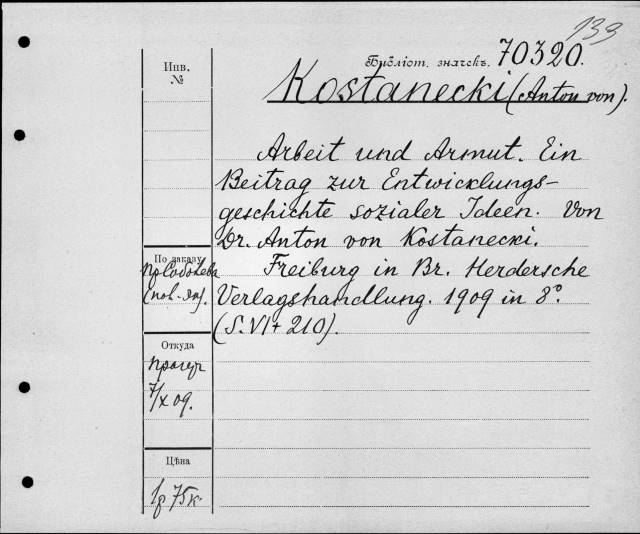 133
Библіот. значекъ. 70320.
Kostanecki (Anton von).
Инв.
№
Arbeit und Armut. Ein
Beitrag zur Entwicklungs-
geschichte sozialer Ideen. Von
Dr. Anton von Kostanecki.
Freiburg in Br. Herdersche
Verlagshandlung. 1909 in 8°.
(S. VI + 210).
По заказу
Откуда
7/X 09.
Цѣна
1р 75к